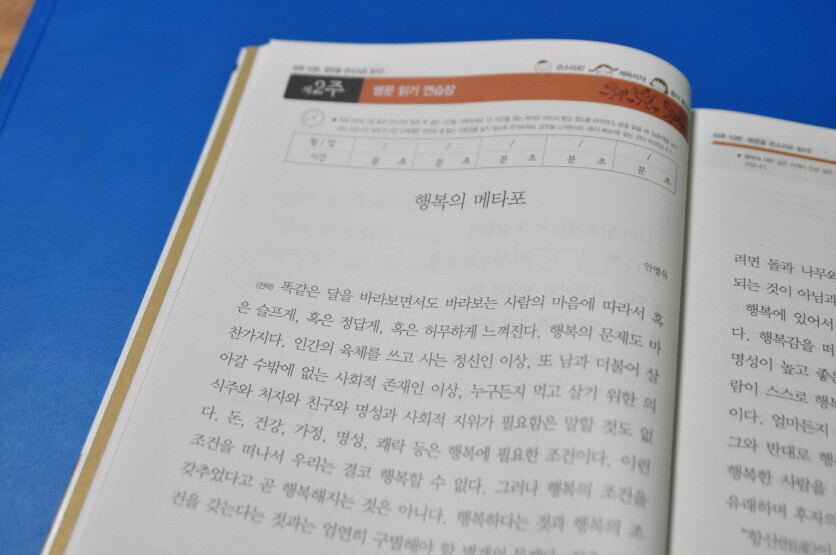 하루 10분, 명문을 큰소리로 읽자!
큰소리로!
제2주 명문 읽기 연습장
월 / 일 / / / / /
시간 분 초 분 초 분 초 분 초 분 초
행복의 메타포
안병욱
(전략) 똑같은 달을 바라보면서도 바라보는 사람의 마음에 따라서 혹
은 슬프게, 혹은 정답게, 혹은 허무하게 느껴진다. 행복의 문제도 마
찬가지다. 인간의 육체를 쓰고 사는 정신인 이상, 또 남과 더불어 살
아갈 수밖에 없는 사회적 존재인 이상, 누구든지 먹고 살기 위한 의
식주와 처자와 친구와 명성과 사회적 지위가 필요함은 말할 것도 없
다. 돈, 건강, 가정, 명성, 쾌락 등은 행복에 필요한 조건이다. 이런
조건을 떠나서 우리는 결코 행복할 수 없다. 그러나 행복의 조건을
갖추었다고 곧 행복해지는 것은 아니다. 행복하다는 것과 행복의 조
건을 갖는다는 것과는 엄연히 구별해야 할 별개의 문제다.
하루 10분, 명문을 큰소리로 읽자!
려면 돌과 나무와
되는 것이 아님과
행복에 있어서
다. 행복감을 떠
명성이 높고 좋은
람이 스스로 행복
이다. 얼마든지
그와 반대로 행
행복한 사람을
유래하며 후자의
"항산(恒産)이